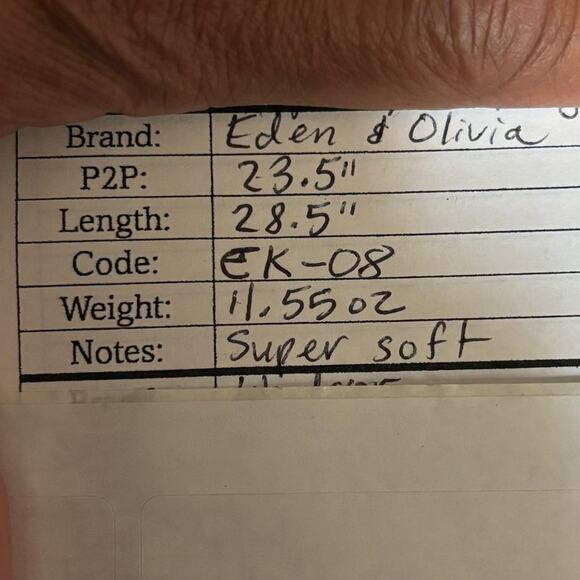 Brand: Eden & Olivia
P2P: 23.5"
Length: 28.5"
Code: EK-08
Weight: 11.55 oz
Notes: Super soft